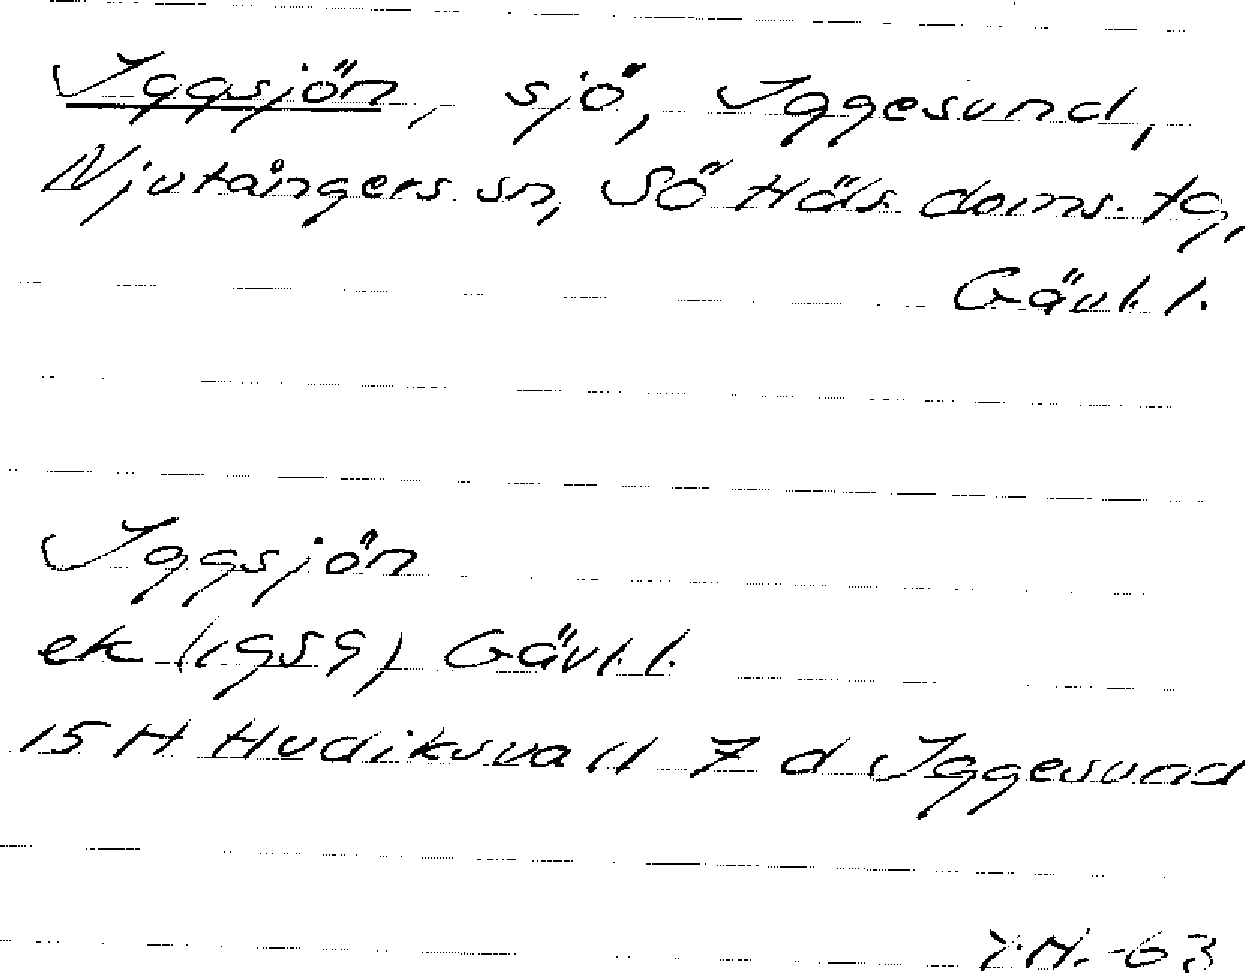 Iggsjön, sjö, Iggesund,
Njutångers sn, Sö Häls. doms. tg,
Gävl. l.
Iggsjön
ek (1959) Gävl. l.
15 H Hudiksvall 7 d Iggesund
-63